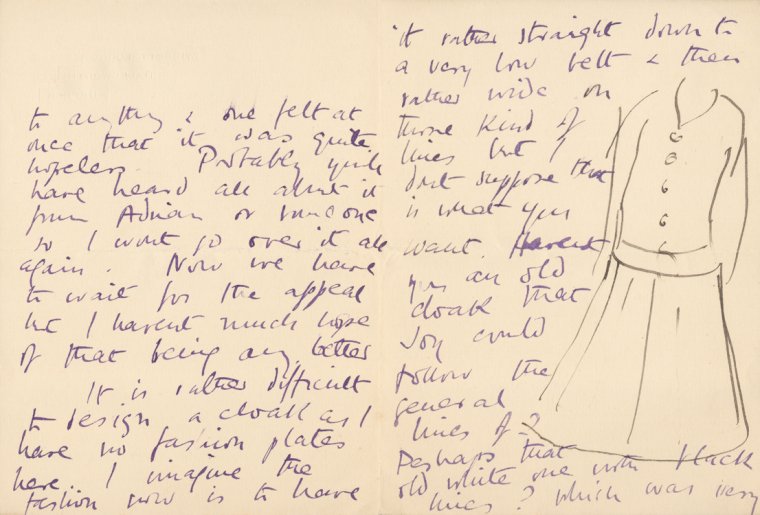 to anything & one felt at
once that it was quite
hopeless. Probably you'll
have heard all about it
from Adrian or someone
so I won't go over it all
again. Now we have
to wait for the appeal
but I havent much hope
of that being any better
It is rather difficult
to design a cloak as I
have no fashion plates
here. I imagine the
fashion now is to have
it rather straight down to
a very low belt & then
rather wide on
those kind of
lines but I
dont suppose that
is what you
want. Havent
you an old
cloak that
Joy could
follow the
general
lines of-?
Perhaps that
old white one with black
lines? which was very